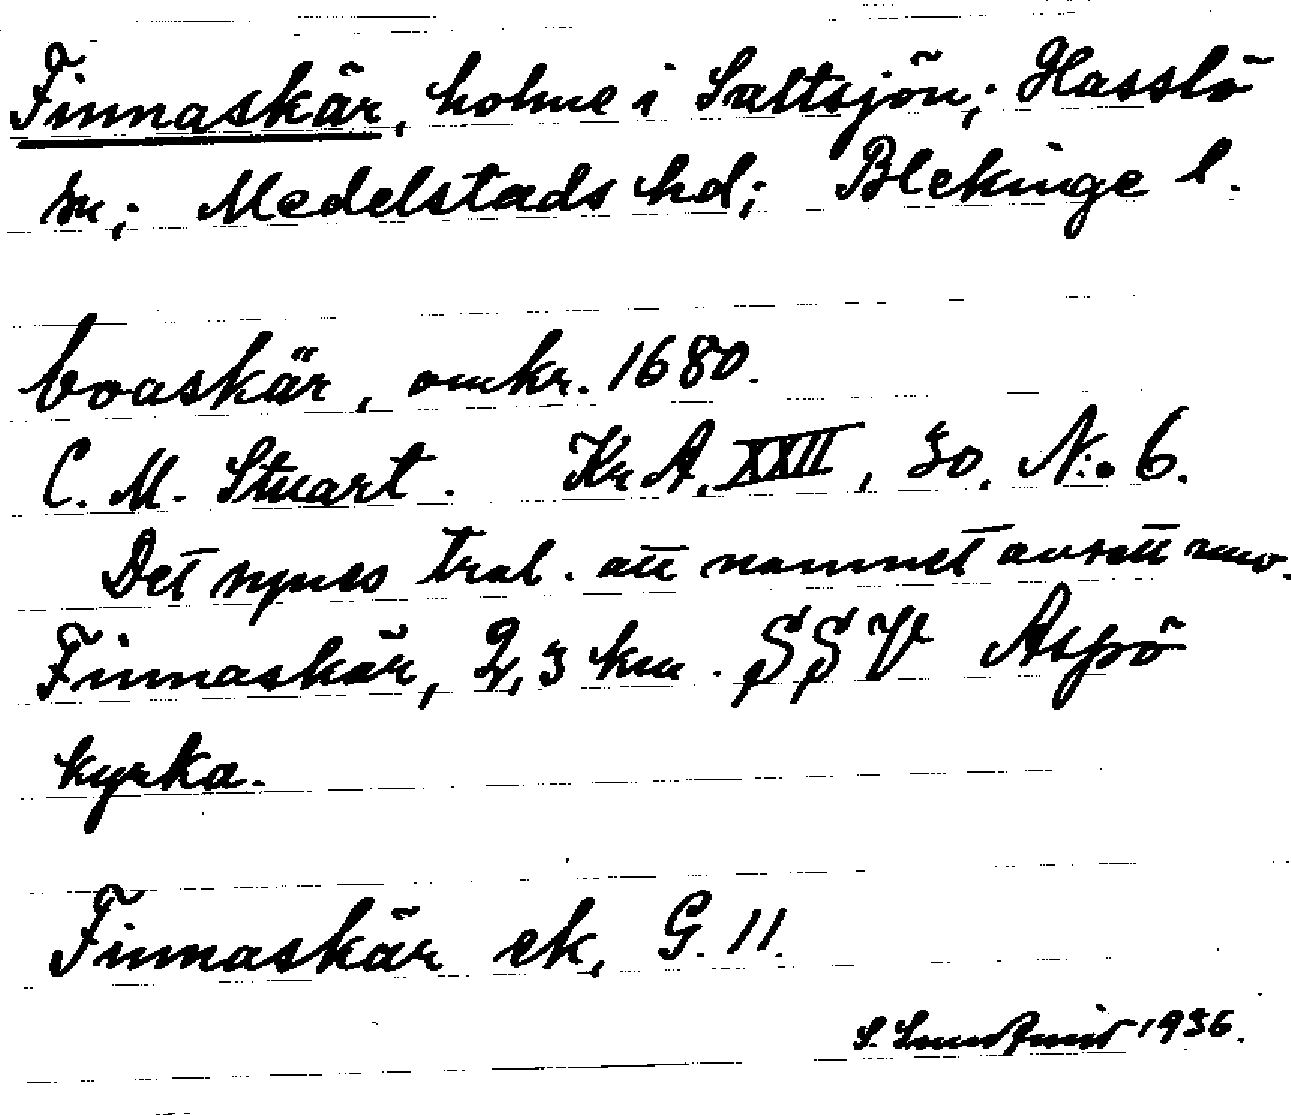 Finnaskär, holme i Saltsjön; Hasslö
sn; Medelstads hd; Blekinge l.
boaskär, omkr. 1680.
C. M. Stuart. Kr A. XXII, 30. N:o 6.
Det synes trol. att namnet avsett nuv.
Finnaskär, 2,3 km. SSV Aspö
kyrka.
Finnaskär ek, G. 11.
S. 1936.